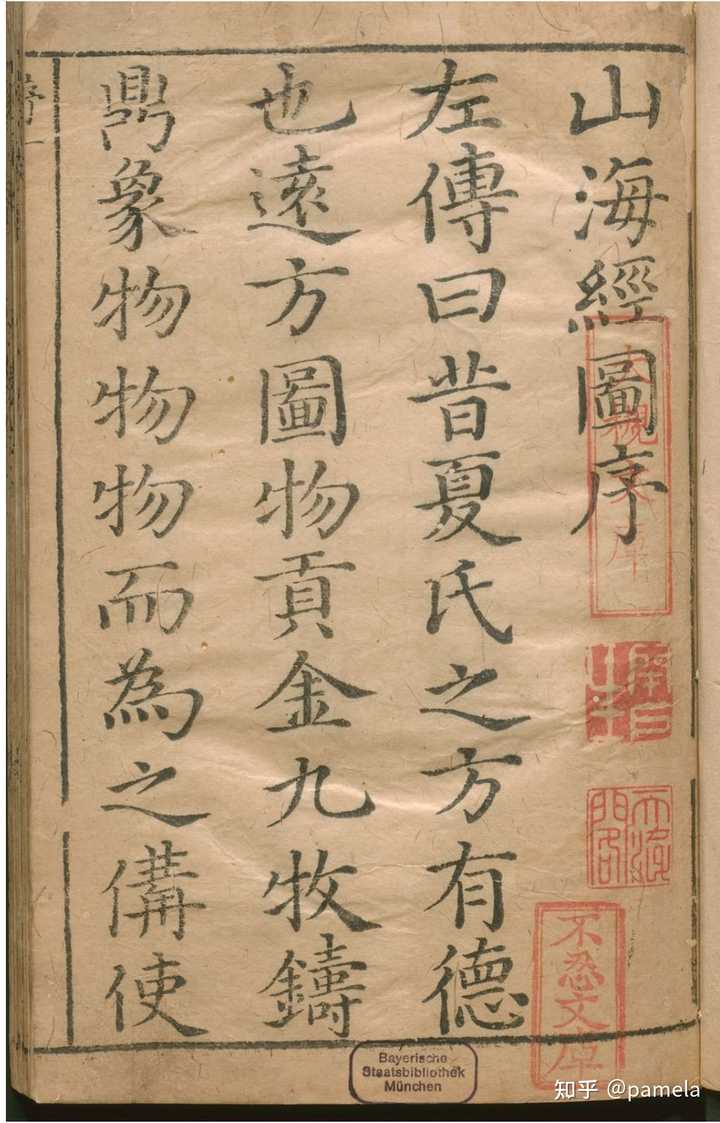 山海經圖序
左傳曰昔夏氏之方有德
也遠方圖物貢金九牧鑄
鼎象物物物而為之備使
序一
不忍文庫
Bayerische
Staatsbibliothek
München
知乎 @pamela